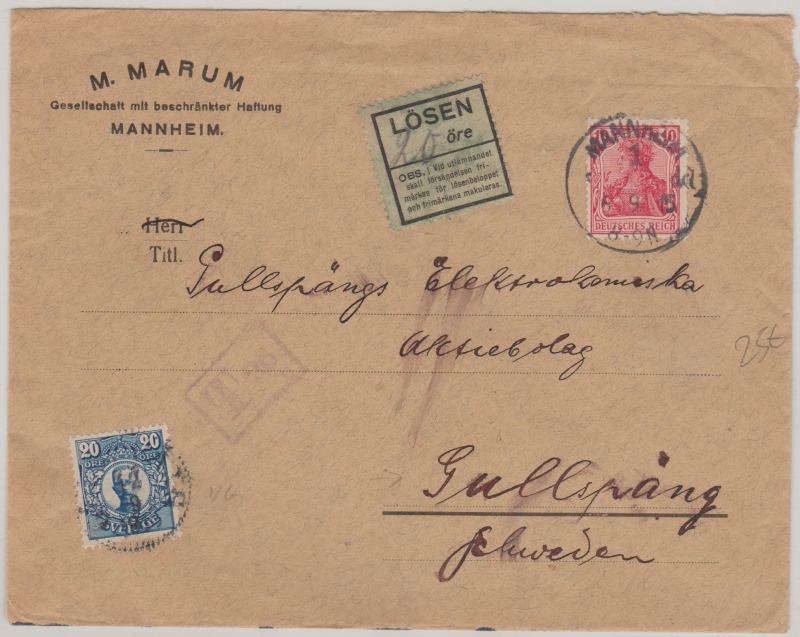 M. MARUM
Gesellschaft mit beschränkter Haftung
MANNHEIM.
LÖSEN
20 öre
OBS.! Vid utlämnandet
skall försändelsen fri-
märkas för lösenbeloppet
och frimärkena makuleras.
10 10
MANNHEIM
1
6 9 15
8-9N
DEUTSCHES REICH
Herr
Titl.
Gullspångs Elektrokemiska
Aktiebolag
Gullspång
Schweden
T
20 20
ÖRE ÖRE
SVERIGE